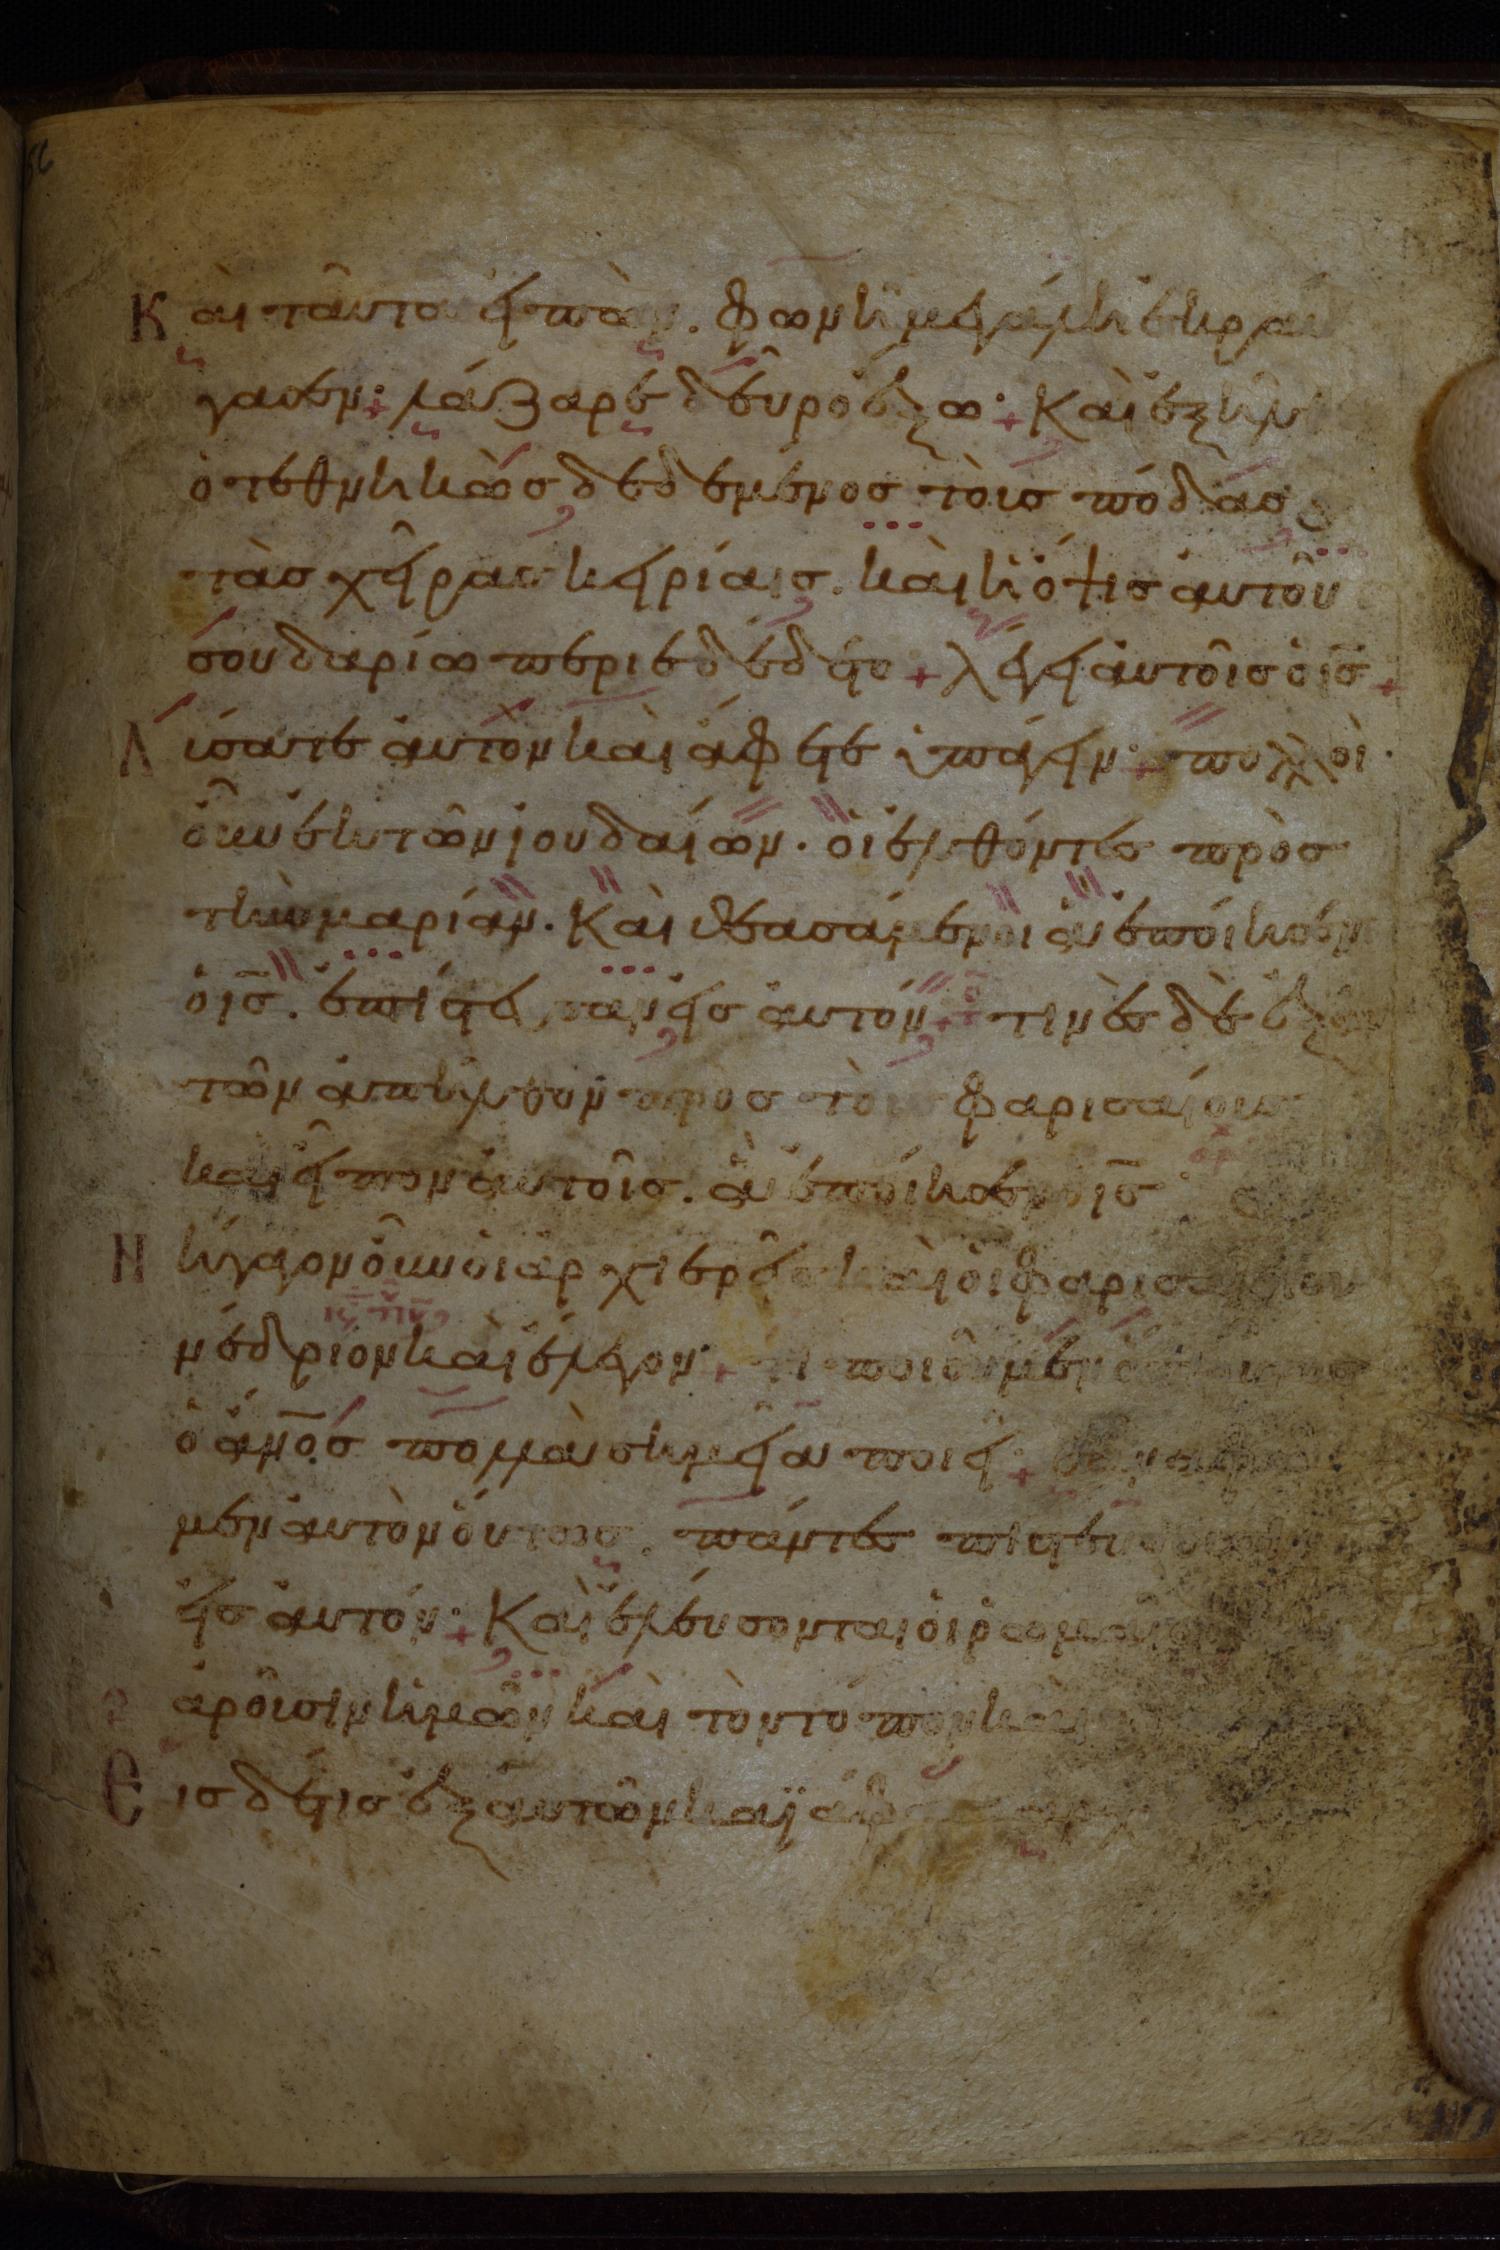 Καὶ ταῦτα εἰπὼν. φωνῆ μεγάλη ἐκραύ
γασεν· λάζαρε δεῦρο ἔξω· Καὶ ἐξῆλθ
ὁ τεθνηκὼς δεδεμένος τοὺς πόδας
τὰς χεῖρας κειρίαις. καὶ ἡ ὄψις αὐτοῦ
σουδαρίω περιεδέδετο λέγει αὐτοῖς ὁ ις
Λύσατε αὐτὸν καὶ ἄφετε ὑπάγειν· πολλοὶ
οὖν ἐκ τῶν ἰουδαίων. οἱ ἐλθόντες πρὸς
τὴν μαρίαν. Καὶ θεασάμενοι ἃ ἐποίησεν
ὁ ις. ἐπίστευσαν εἰς αὐτόν τινὲς δὲ ἐξ
τῶν ἀπῆλθον πρὸς τοὺς φαρισαίους
καὶ εἶπον αὐτοῖς. ἃ ἐποίησεν ὁ ις
συνήγαγον οὖν οἱ ἀρχιερεῖς καὶ οἱ φαρισαῖοι συ
νέδριον καὶ ἔλεγον· τί ποιοῦμεν
ὁ ανος πολλὰ σημεῖα ποιεῖ·
μεν αὐτὸν οὕτως. πάντες πιστευ
εἰς αὐτόν· Καὶ ἐλεύσονται οἱ ῥωμαῖοι
ἀροῦσιν ἡμῶν καὶ τὸν τόπον καὶ
Εἷς δέ τις ἐξ αὐτῶν καϊάφ